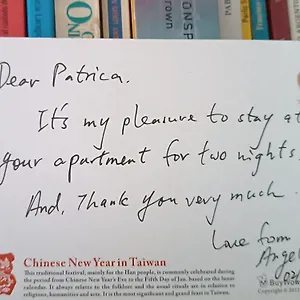 Dear Patrica.
It's my pleasure to stay at
your apartment for two nights.
And, Thank you very much.
Love from
Angel
Chinese New Year in Taiwan
This traditional festival, mainly for the Han people, is commonly celebrated during
the period from Chinese New Year's Eve to the Fifth Day of Jan. based on the lunar
calendar. It always relates to the folklore and the usual rituals are in relation to
religions, humanities and arts. It is the most significant and grand feast in Taiwan.